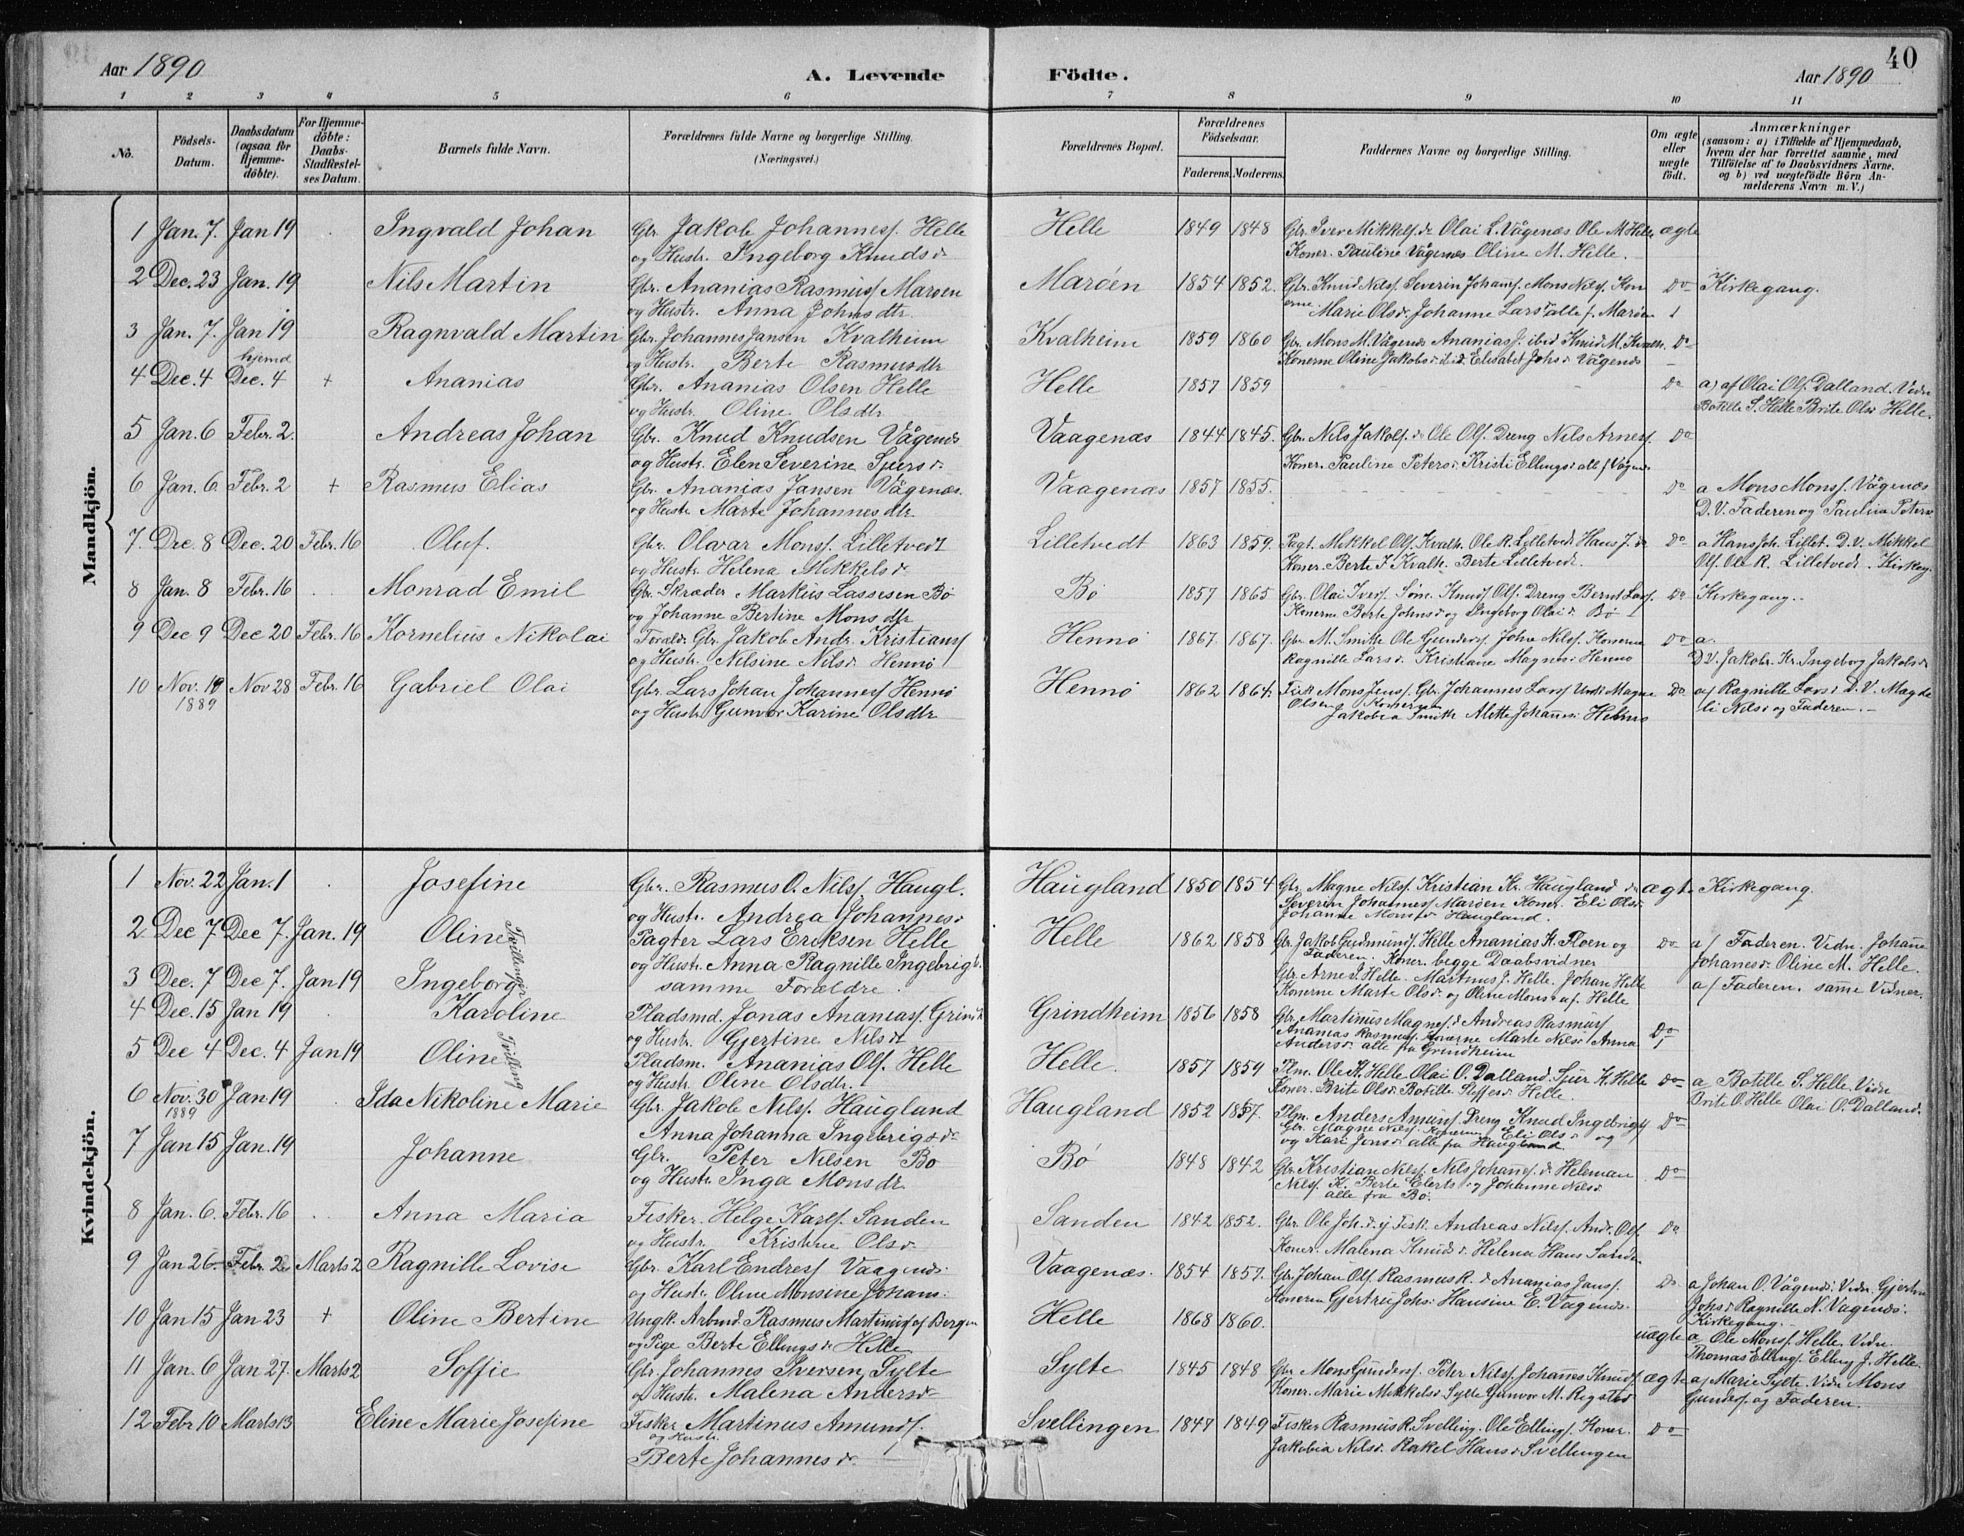 40
Aar 1890 A. Levende Födte. Aar 1890
1 2 3 4 5 6 7 8 9 10 11
No.
Födsels-Datum.
Daabsdatum (ogsaa for Hjemme-döbte).
For Hjemme-döbte: Daabs-Stadfæstel-ses Datum.
Barnets fulde Navn.
Forældrenes fulde Navne og borgerlige Stilling. (Næringsvei.)
Forældrenes Bopæl.
Forældrenes Födselsaar.
Faderens. Moderens.
Faddernes Navne og borgerlige Stilling.
Om ægte eller uægte födt.
Anmærkninger
(saasom: a) i Tilfælde af Hjemmedaab, hvem der har forrettet samme, med Tilföielse af to Daabsvidners Navne. og b) ved uægtefödte Börn An-melderens Navn m. V.)
Mandkjön.
1 Jan. 7. Jan 19 Ingvald Johan Gbr. Jakob Johannesf. Helle Helle 1849 1848 Gbr. Iver Mikkelf. Olai L. Vågenæs Ole M. Helle ægte
og Hustr. Ingeborg Knudsd. Koner. Pauline Vågenæs Oline M. Helle.
2 Dec. 23 Jan. 19 Nils Martin Gbr. Ananias Rasmusf Marøen Marøen 1854 1852. Gbr. Knud Nilsf. Severin Johansf. Mons Nilsf. Kon Do Kirkegang.
og Hustr. Anna Johnsdtr. erne Marie Olsd. Johanne Larsd alle f. Marøen
3 Jan. 7. Jan 19 Ragnvald Martin Gbr. Johannes Jansen Kvalheim Kvalheim 1859 1860 Gbr. Mons M. Vågenæs Ananias J. ibid Knud M. Kvalh. Do
og Hustr. Berte Rasmusdtr Konerne Oline Jakobsd ibid. Elisabet Johsd Vågenæs
4 Dec. 4 hjemd Dec. 4 + Ananias Gbr. Ananias Olsen Helle Helle 1857 1859 Do a) af Olai Olf. Dalland. Vidn
og Hustr. Oline Olsdtr Botille S. Helle Brite Olsd Helle.
5 Jan. 6 Febr. 2. Andreas Johan Gbr. Knud Knudsen Vågenæs Vaagenæs 1844 1845. Gbr. Nils Jakobf. Ole Olf. Dreng Nils Arnesf. Do
og Hustr. Elen Severine Sjursd. Koner. Pauline Petersd. Kristi Ellingsd alle f Vågen
6 Jan. 6. Febr. 2 + Rasmus Elias Gbr. Ananias Jansen Vågenæs. Vaagenæs 1857 1855. Do a Mons Monsf. Vågenæs
og Hustr Marte Johannesdtr. D. V. Faderen og Paulina Peters
7. Dec. 8 Dec. 20 Febr. 16 Oluf. Gbr. Olvar Monsf. Lilletvedt Lilletvedt 1863 1859. Pagt. Mikkel Olf. Kvalh. Ole R. Lilletvedt Hans J. Do a Hans Joh. Lillet. D. V. Mikkel
og Hustr. Helena Mikkelsd. Koner. Berte J Kvalh. Berte Lilletvedt. Olf. Ole R. Lilletvedt. Kirkeg.
8 Jan. 8 Febr. 16 Monrad Emil Gbr. Skræder Markus Lassesen Bö Bø 1857 1865 Gbr. Olai Iversf. Søne Knud Olf. Dreng Bernt Larsf. Do Kirkegang.
og Johanne Bertine Monsdtr Konerne Berte Johnsd og Ingeborg Olaid. Bø
9 Dec 9 Dec 20 Febr. 16 Kornelius Nikolai Forældr. Gbr. Jakob Andr. Kristiansf Hennø 1867 1867. Gbr. M. Smith Ole Gundersf. John Nilsf. Konerne Do a.
og Hustr. Nilsine Nilsd. Hennø Ragnille Larsd. Kristiane Magnesd Hennø D. V. Jakobr. Kr. Ingeborg Jakobsd
10 Nov. 19 1889 Nov 28 Febr. 16 Gabriel Olai Gbr. Lars Johan Johannesf Hennø Hennø 1862 1864. Fisk Mons Jensf. Gbr. Johannes Larsf Magne Do af Ragnille Larsd D. V. Magde
og Hustr Gunvor Karine Olsdtr Olsen Konerne Jakobea Smith Alette Johannesd Hennø li Nilsd og Faderen.
Kvindekjön.
1 Nov. 22 Jan. 1 Josefine Gbr. Rasmus O. Nilsf Haugl. Haugland 1850 1854 Gbr. Magne Nilsf. Kristian Kr. Haugland ægte Kirkegang.
og Hustr. Andrea Johannesd Severin Johannesf Marøen Koner. Eli Olsd Johanne Monsd Haugland.
2 Dec 7 Dec 7. Jan. 19 Oline Tvillinger Pagter Lars Eriksen Helle Helle 1862 1858 Gbr. Jakob Gudmundf. Helle Ananias K. Floen og Do a f Faderen. Vidn. Johane
og Hustr. Anna Ragnille Ingebrigt. Faderen. Koner. begge Daabsvidner Johanesd. Oline M. Helle.
3 Dec. 7 Dec 7. Jan 19 Ingeborg samme Foraldre. Gbr. Arne S. Helle. Martinus J. Helle. Johan Helle a f Faderen. same Vidner.
Konerne Marte Olsd. og Oline Monsd af. Helle
4 Dec. 15 Jan 19 Karoline Pladsmd. Jonas Ananiasf. Grind Grindheim 1856 1858 Gbr. Martinus Magnesf. Andreas Rasmusf Do
og Hustr. Gjertine Nilsdt Ananias Rasmusf. Konerne Marte Nilsd Anna Andersd. alle fra Grindheim
5 Dec 4 Dec. 4 Jan 19 Oline Tvilling Pladsm. Ananias Olf. Helle Helle. 1857 1859 Plm. Ole K. Helle Olai O. Dalland. Sjur K. Helle Do a Botille S. Helle. Vidn
og Hustr Oline Olsdtr. Koner. Brite Olsd. Botille Steffesd. Helle. Brite O. Helle Olai O. Dalland.
6 Nov. 30 1889 Jan 19 Ida Nikoline Marie Gbr. Jakob Nilsf. Haugland Haugland 1852 1857. Plm. Anders Amunsf. Dreng Knud Ingebrigtf Do
Anna Johanna Ingebrigsd. Gbr. Magne Nilsf. Konerne Eli Olsd og og Kari Jonsd alle fra Haugland.
7 Jan 15 Jan. 19 Johanne Gbr. Peter Nilsen Bø Bø 1848 1842 Gbr. Kristian Nilsf. Nils Johanesf. Heleman Do
og Hustr Inga Monsdr. Nilsf K. Berte Elertsd og Johanne Nilsd. alle fra Bø.
8 Jan. 6. Febr. 16 Anna Maria Fisker. Helge Karlf. Sanden Sanden 1842 1852. Gbr. Ole Joh. Fisk. Andreas Nilsf. And. Olf. Do
og Hustr. Kristine Olsd. Koner. Malena Knudsd. Helena Hans Sanden
9 Jan 26. Febr. 2 Marts 2 Ragnille Lovise Gbr. Karl Endresf Vaagenæs. Vaagenæs. 1854 1857. Gbr. Johan Olf Rasmus R. Ananias Jansf. Do a Johan O. Vågenæs. Vidn. Gjertru
og Hustr Oline Monsine Johans. Konerne Gjertru Johsd. Hansine E. Vagenæs. Johsd Ragnille N. Vagenæs. Kirkegang.
10 Jan 15 Jan 23 + Oline Bertine Ungk. Arbmd. Rasmus Martinusf af Bergen Helle 1868 1860. uægte a Ole Monsf. Helle. Vidn.
og Pige Berte Ellingsd Helle Thomas Ellingf. Elling J. Helle.
11 Jan. 6 Jan 27. Marts 2 Soffie Gbr Johannes Iversen Sylte Sylte 1845 1848 Gbr Mons Gundersf. Peter Nilsf. Johannes Knudf ægte af Marie Sylte. Vidn Mons
og Hustr. Malena Andersd. Koner. Marie Mikkelsd Sylte Gunvor M. Gundersf. og Faderen.
12 Febr 10 Marts 13 Eline Marie Josefine Fisker Martinus Amundsf. Svellingen 1847 1849 Fisker Rasmus R. Svelling. Ole Ellingf. Koner. Do
og Hustr. Berte Johannesd. Jakobia Nilsd. Rakel Hansd Svellingen